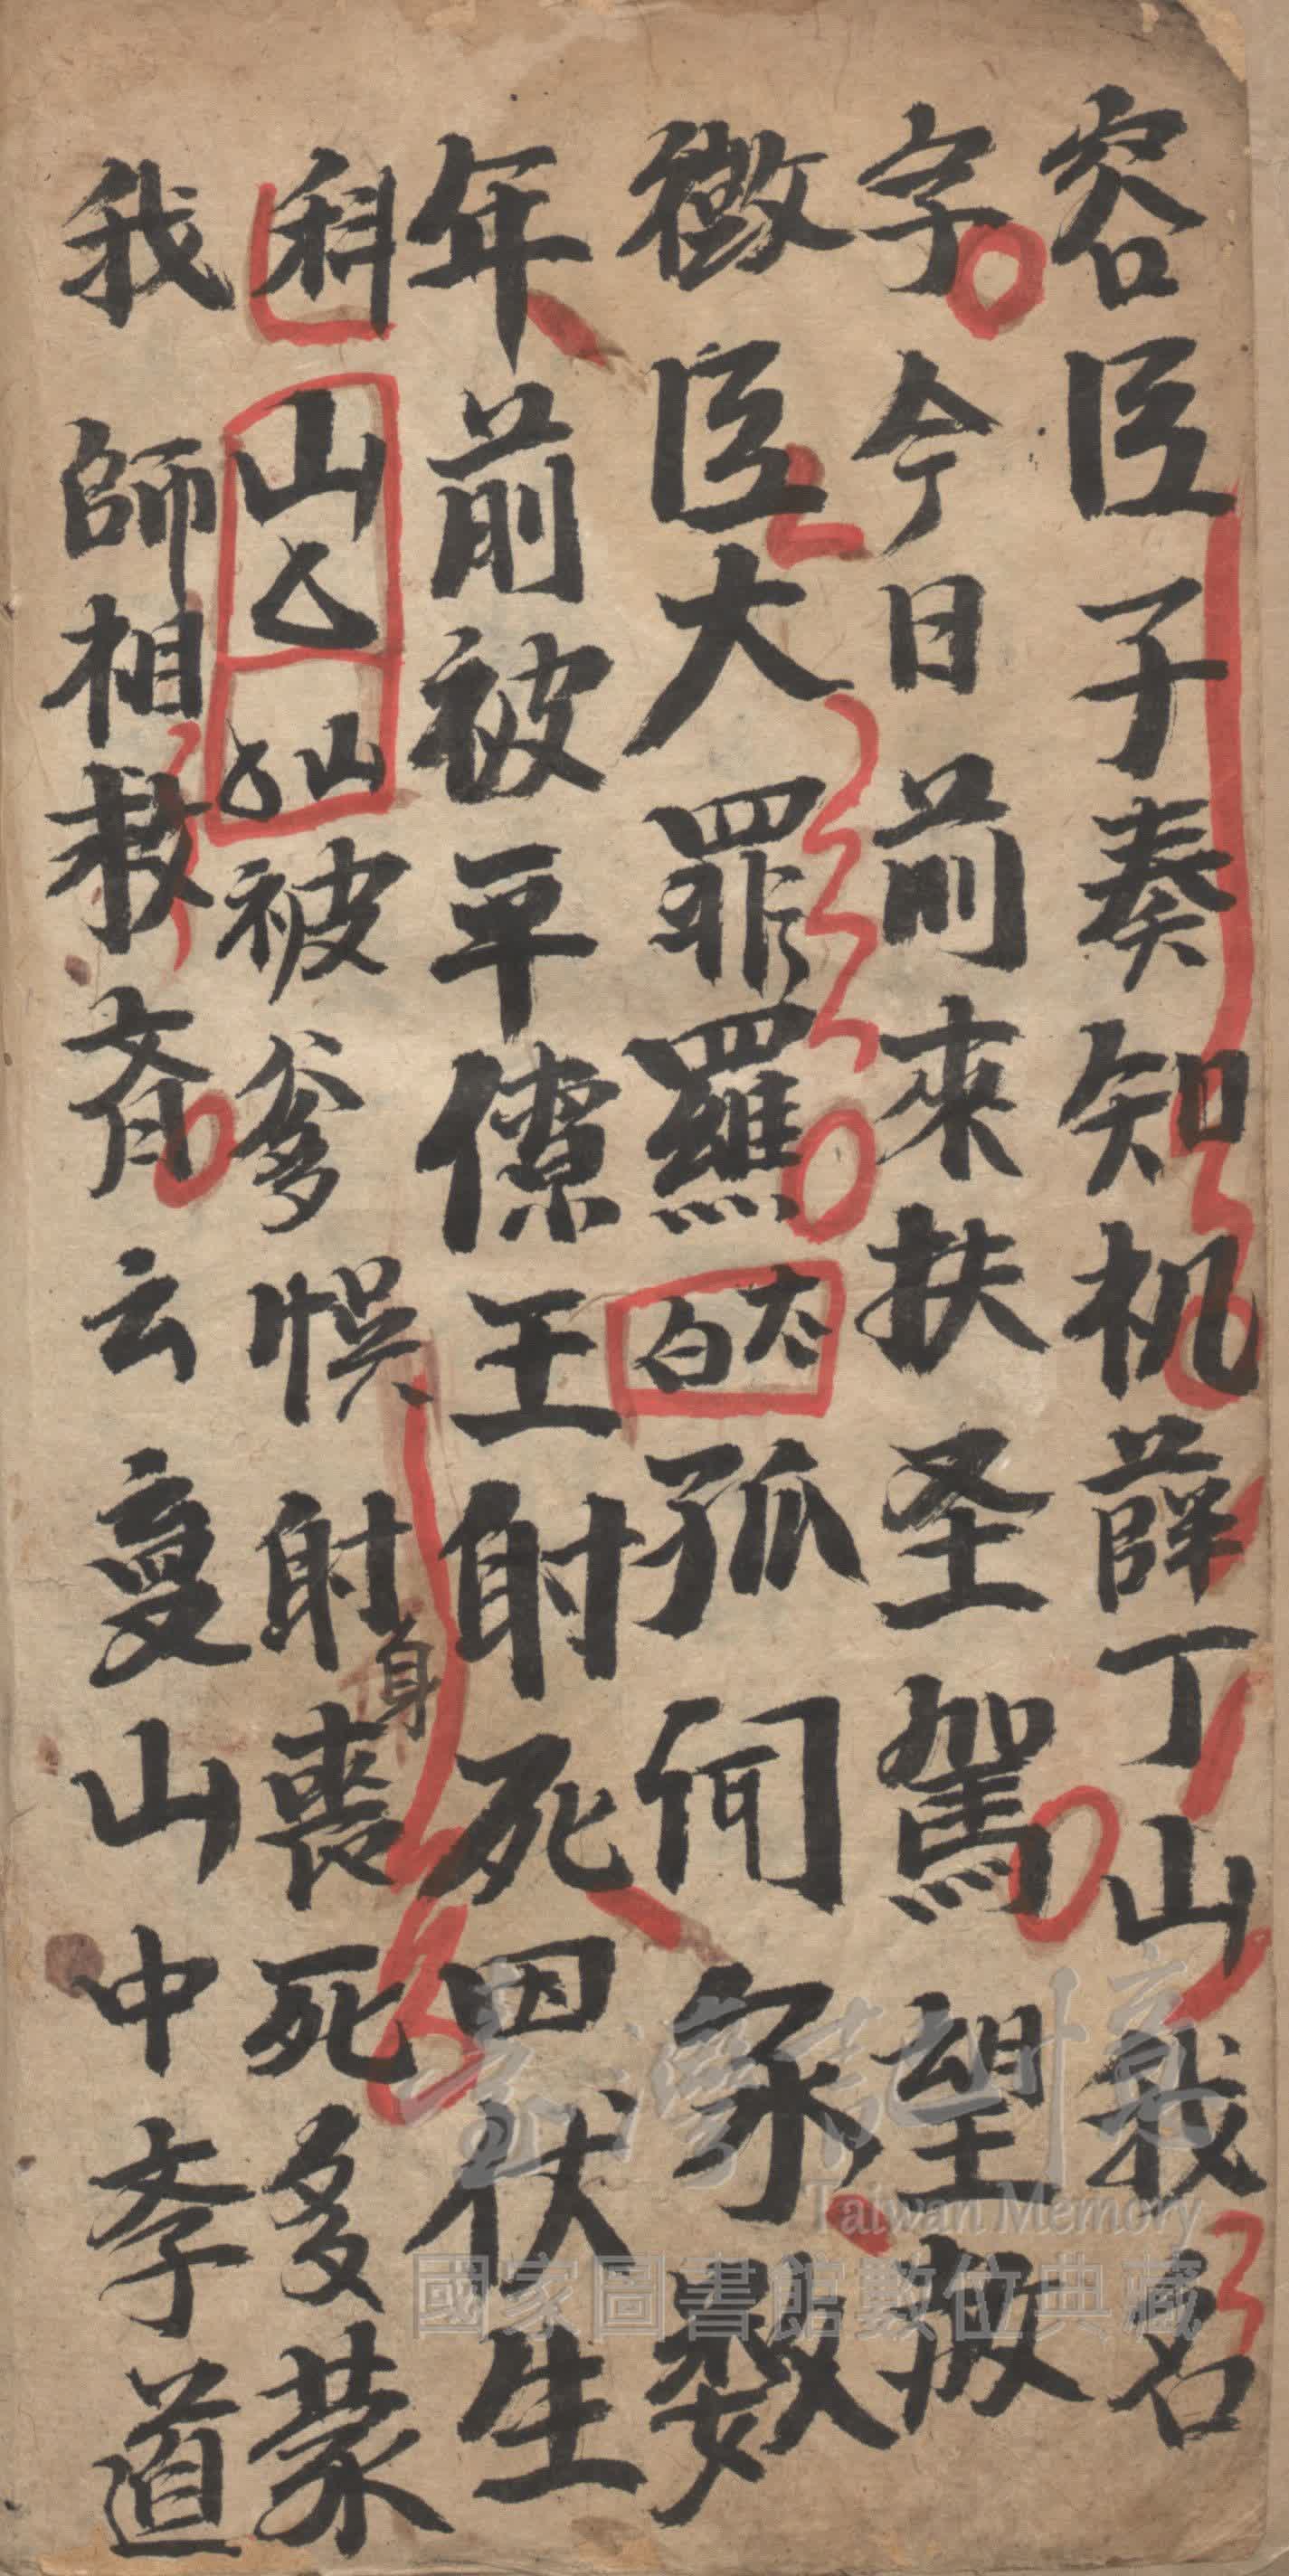 容臣子奏知机薛丁山我名
字今日前來扶圣駕望赦
微臣大罪羅太白孤问家数
年前被平儫王射死因伏生
科山乙山乙被爹悮射身喪死多蒙
我師相救斉云夏山中孝道
臺灣記憶
Taiwan Memory
國家圖書館數位典藏